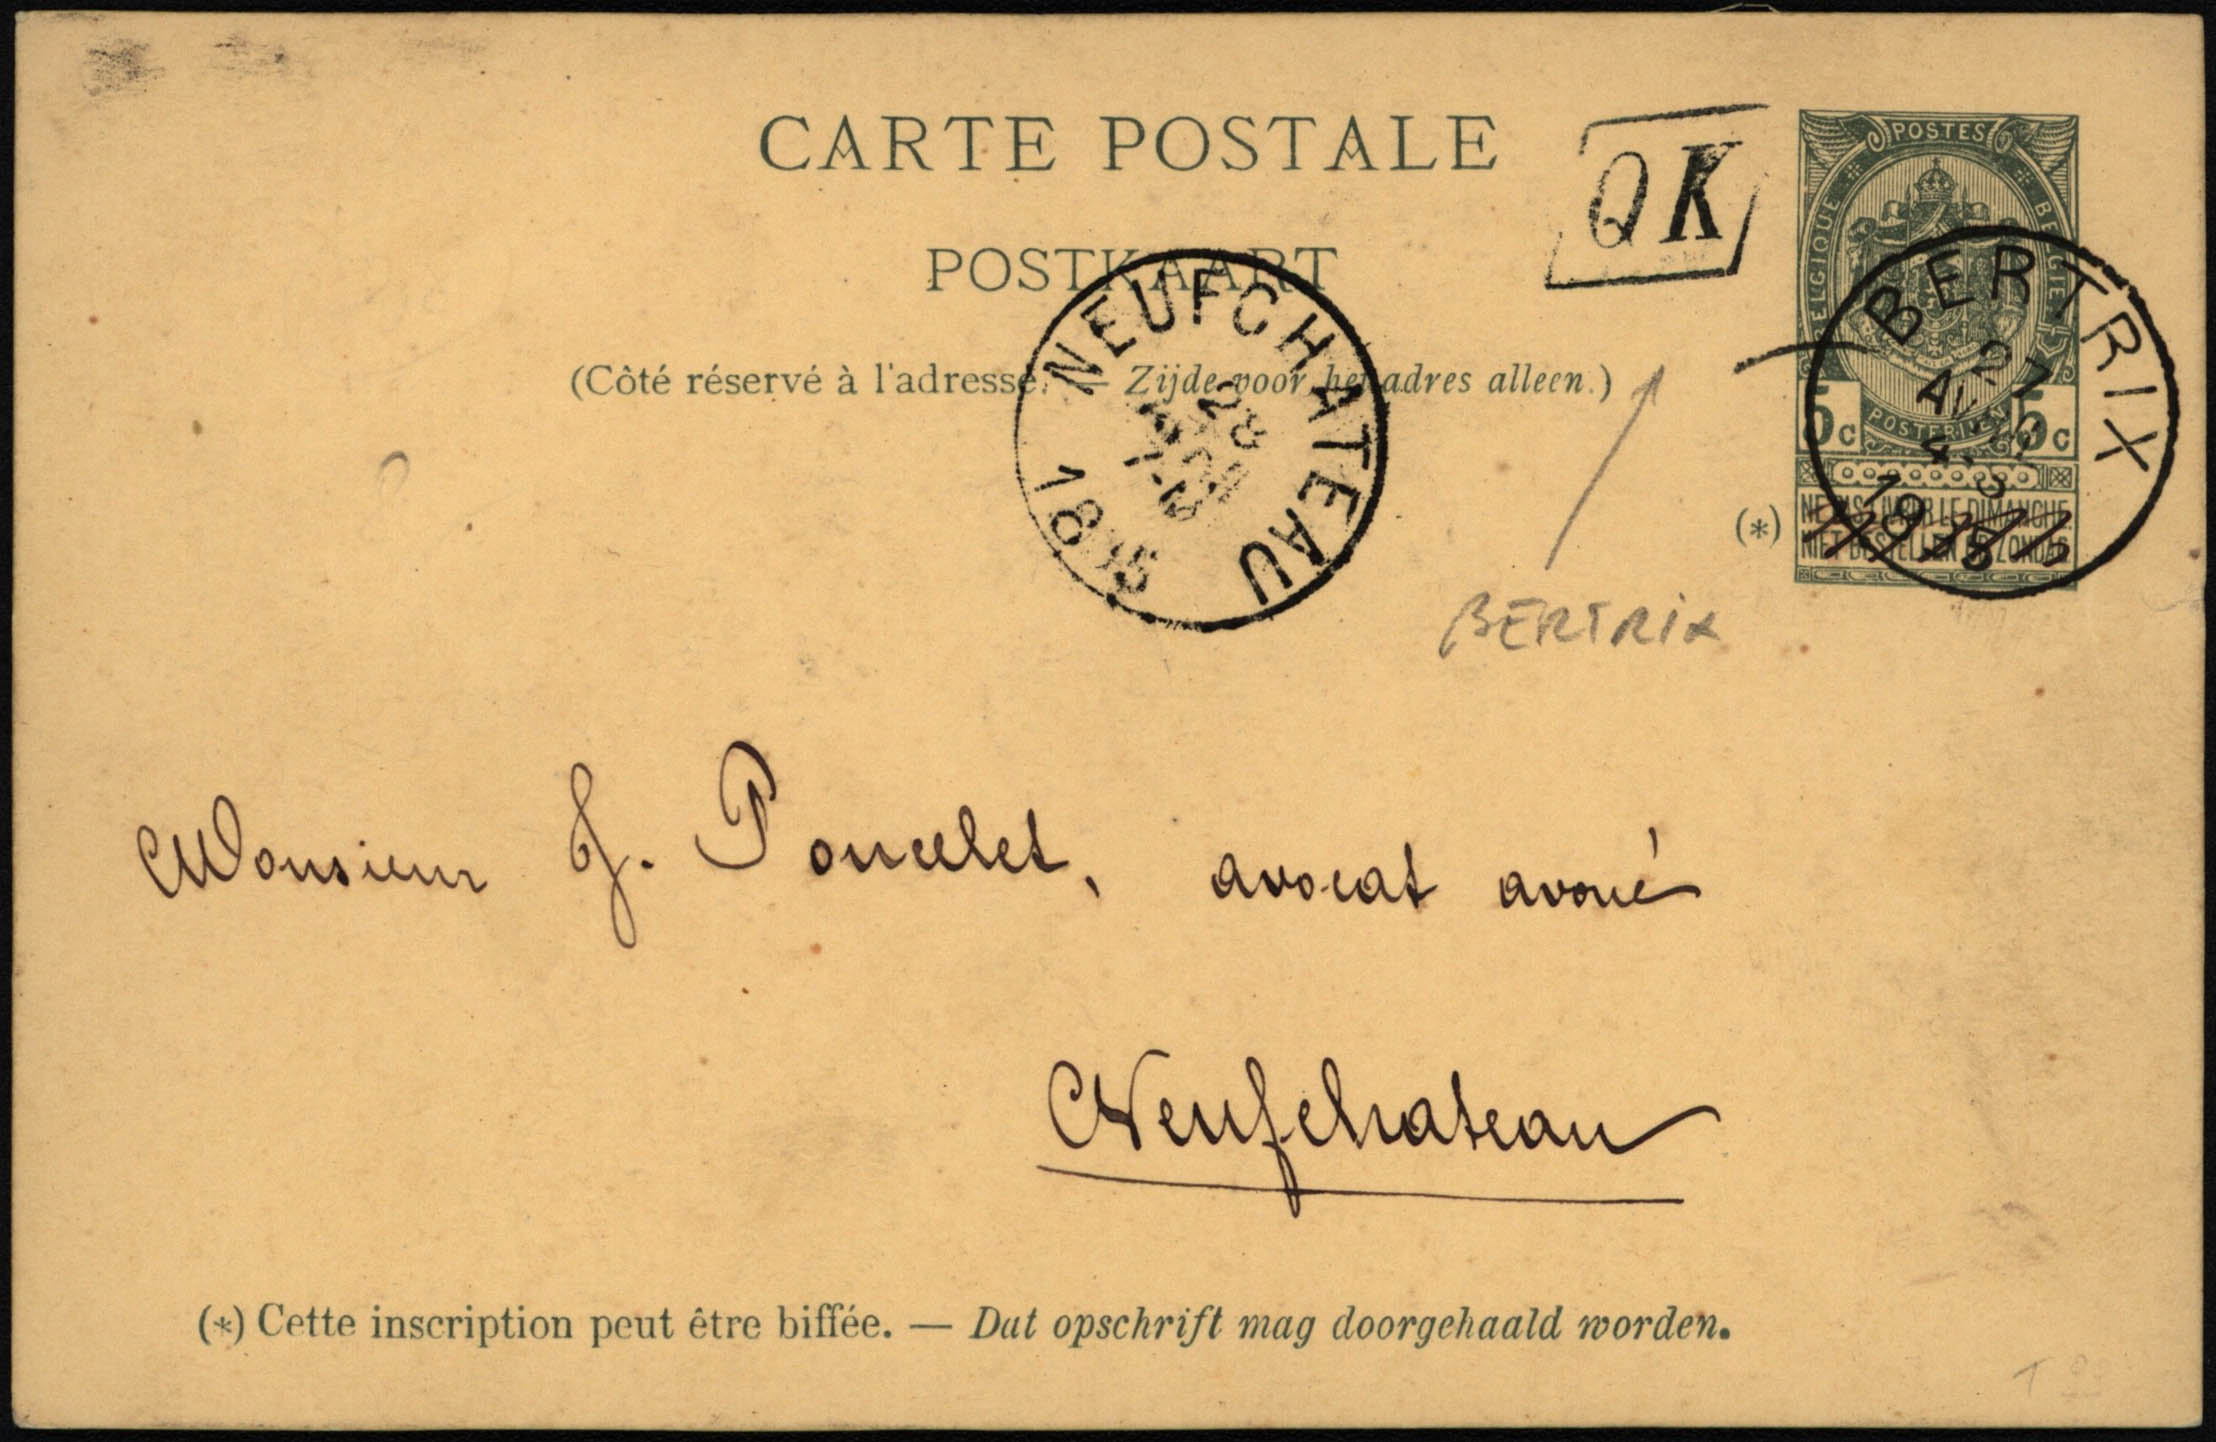 CARTE POSTALE
QK
POSTKAART
(Côté réservé à l'adresse. — Zijde voor het adres alleen.)
POSTES
BELGIQUE
BELGIE
POSTERIJEN
5c 5c
(*) NE PAS LIVRER LE DIMANCHE
NIET BESTELLEN OP ZONDAG
BERTRIX
27
NEUFCHATEAU
28
BERTRIX
Monsieur J. Poncelet, avocat avoué
Neufchateau
(*) Cette inscription peut être biffée. — Dat opschrift mag doorgehaald worden.